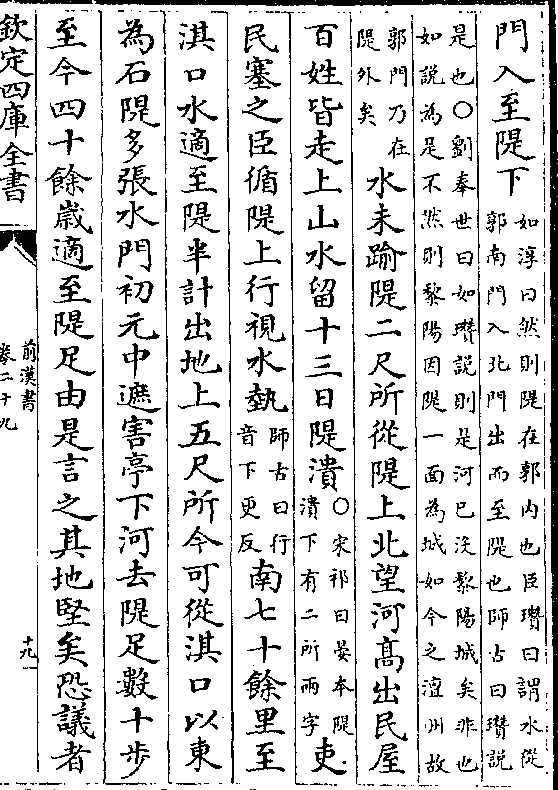 門入至隄下
如淳曰然則隄在郭内也臣瓚曰謂水從
郭南門入北門出而至隄也師古曰瓚說
是也○劉奉世曰如瓚說則是河已没黎陽城矣非也
如說為是不然則黎陽因隄一面為城如今之澶州故
郭門乃在
隄外矣
水未踰隄二尺所從隄上北望河髙出民屋
百姓皆走上山水留十三日隄潰
○宋祁曰晏本隄
潰下有二所兩字
吏
民塞之臣循隄上行視水埶
師古曰行
音下更反
南七十餘里至
淇口水適至隄半計出地上五尺所今可從淇口以東
為石隄多張水門初元中遮害亭下河去隄足數十步
至今四十餘歳適至隄足由是言之其地堅矣恐議者
欽定四庫全書
前漢書
卷二十九
十九